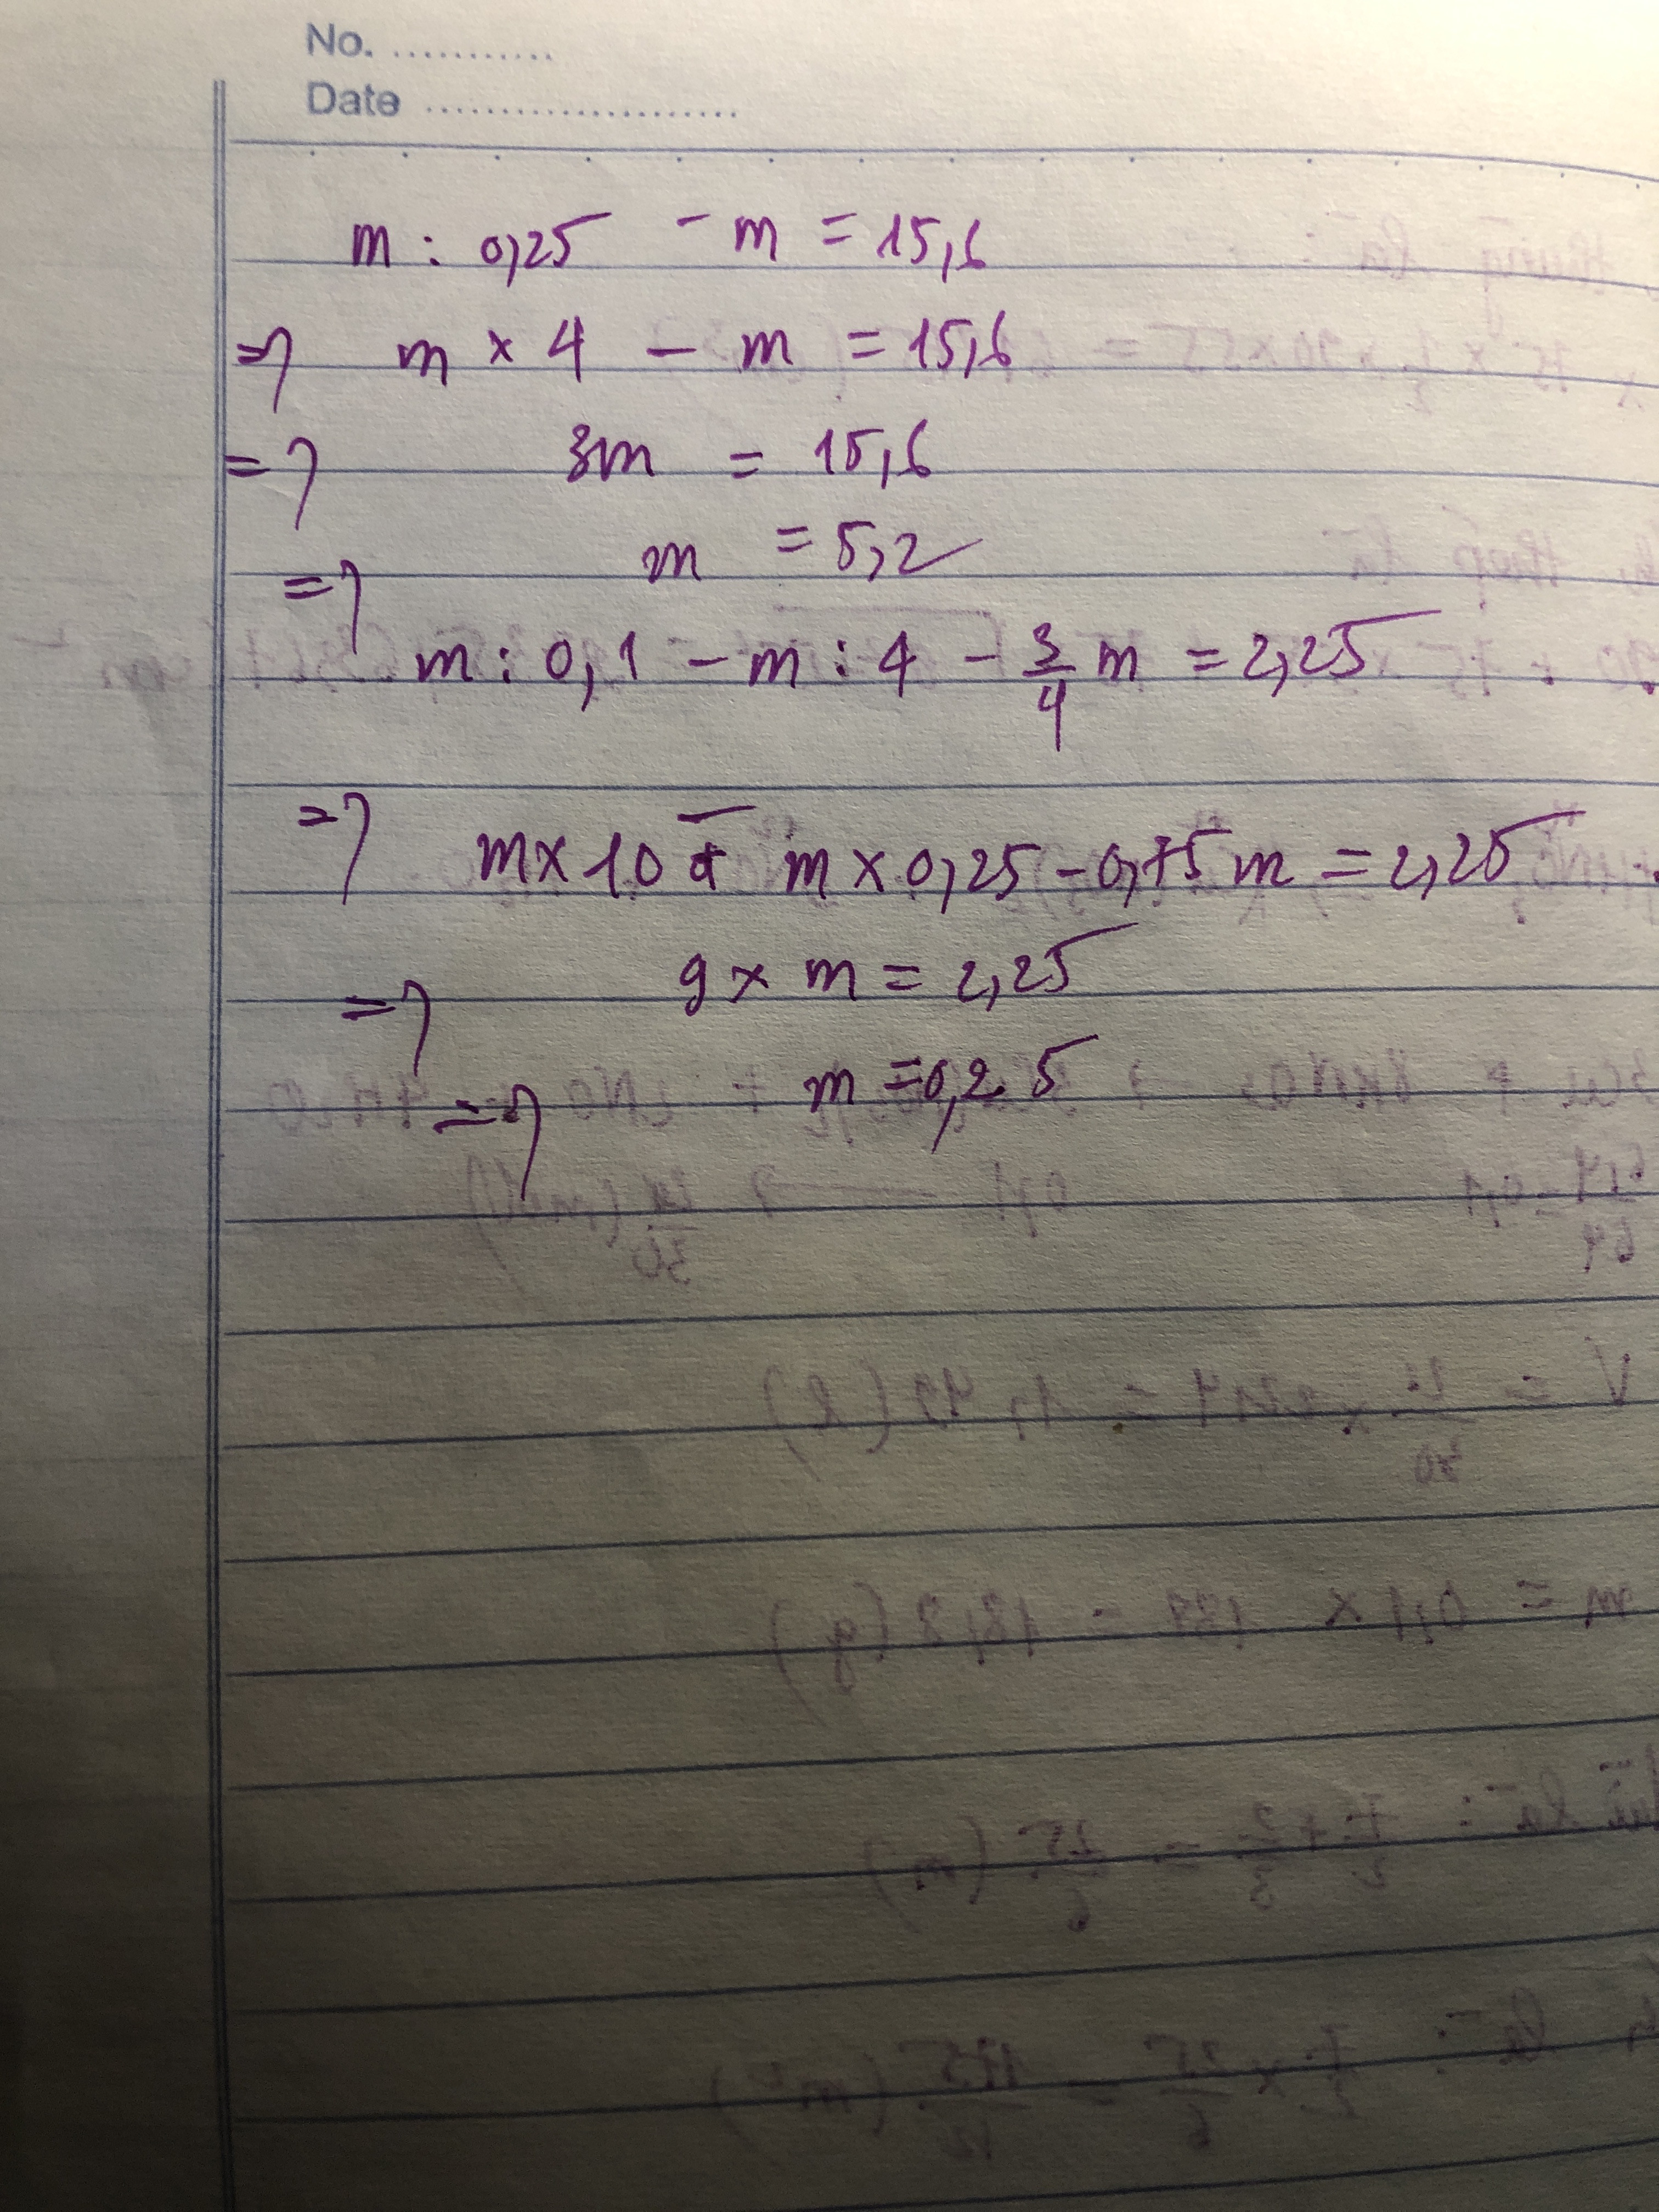 No. ...........
Date .....................
m : 0,25 - m = 15,6
=> m × 4 - m = 15,6
=> 3m = 15,6
=> m = 5,2
m : 0,1 - m : 4 - 3/4 m = 2,25
=> m × 10 - m × 0,25 - 0,75 m = 2,25
=> 9 × m = 2,25
=> m = 0,25